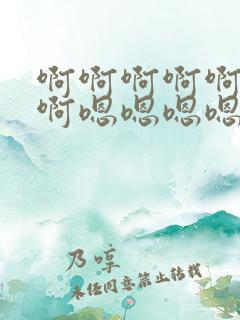 啊啊啊啊啊
啊嗯嗯嗯嗯
乃哼
未经同意禁止转载